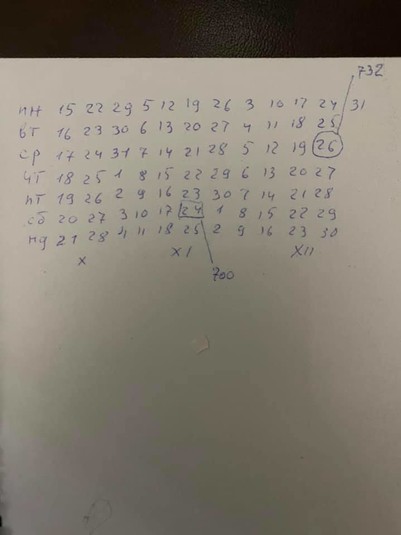 732
пн 15 22 29 5 12 19 26 3 10 17 24 31
вт 16 23 30 6 13 20 27 4 11 18 25
ср 17 24 31 7 14 21 28 5 12 19 26
чт 18 25 1 8 15 22 29 6 13 20 27
пт 19 26 2 9 16 23 30 7 14 21 28
сб 20 27 3 10 17 24 1 8 15 22 29
нд 21 28 4 11 18 25 2 9 16 23 30
X XI XII
700